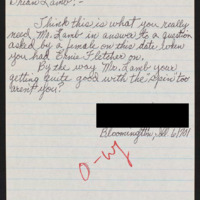 Brian Lamb; -
Think this is what you really
need Mr. Lamb in answer to a question
asked by a female on this date when
you had Ernie Fletcher on.
By the way Mr. Lamb your
getting quite good with the spin too
aren't you?
Bloomington, 61701
O-wy